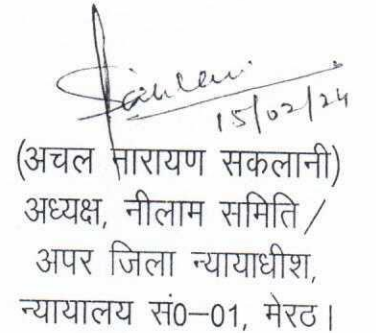 15/02/24
(अचल नारायण सकलानी)
अध्यक्ष, नीलाम समिति /
अपर जिला न्यायाधीश,
न्यायालय सं0-01, मेरठ।